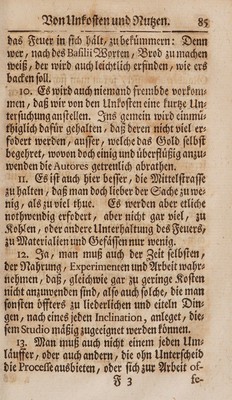 Von Unkosten und Nutzen. 85
das Feuer in sich hält, zu bekümmern: Denn
wer, nach des Basilii Worten, Brod zu machen
weiß, der wird auch leichtlich erfinden, wie ers
backen soll.
10. Es wird auch niemand frembde vorkom-
men, daß wir von den Unkosten eine kurtze Un-
tersuchung anstellen. Ins gemein wird einmü-
thiglich dafür gehalten, daß deren nicht viel er-
fodert werden, ausser, welche das Gold selbst
begehret, wovon doch einig und überflüßig anzu-
wenden die Autores getreulich abrathen.
11. Es ist auch hier besser, die Mittelstrasse
zu halten, daß man doch lieber der Sache zu we-
nig, als zu viel thue. Es werden aber etliche
nothwendig erfodert, aber nicht gar viel, zu
Kohlen, oder andere Unterhaltung des Feuers,
zu Materialien und Gefässen nur wenig.
12. Ja, man muß auch der Zeit selbsten,
der Nahrung, Experimenten und Arbeit wahr-
nehmen, daß, gleichwie gar zu geringe Kosten
nicht anzuwenden sind, also auch solche, die man
sonsten öffters zu liederlichen und eiteln Din-
gen, nach eines jeden Inclination, anleget, die-
sem Studio mäßig zugeeignet werden können.
13. Man muß auch nicht einem jeden Um-
läuffer, oder auch andern, die ohn Unterscheid
die Processe ausbieten, oder sich zur Arbeit of-
F 3 fe-